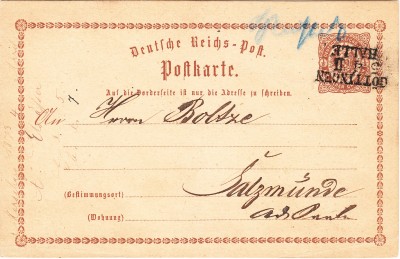 Deutsche Reichs-Post.
Postkarte.
GÖTTINGEN
HALLE
Auf die Vorderseite ist nur die Adresse zu schreiben.
An Herrn Boltze
Salzmünde
(Bestimmungsort)
(Wohnung) a.d. Saale